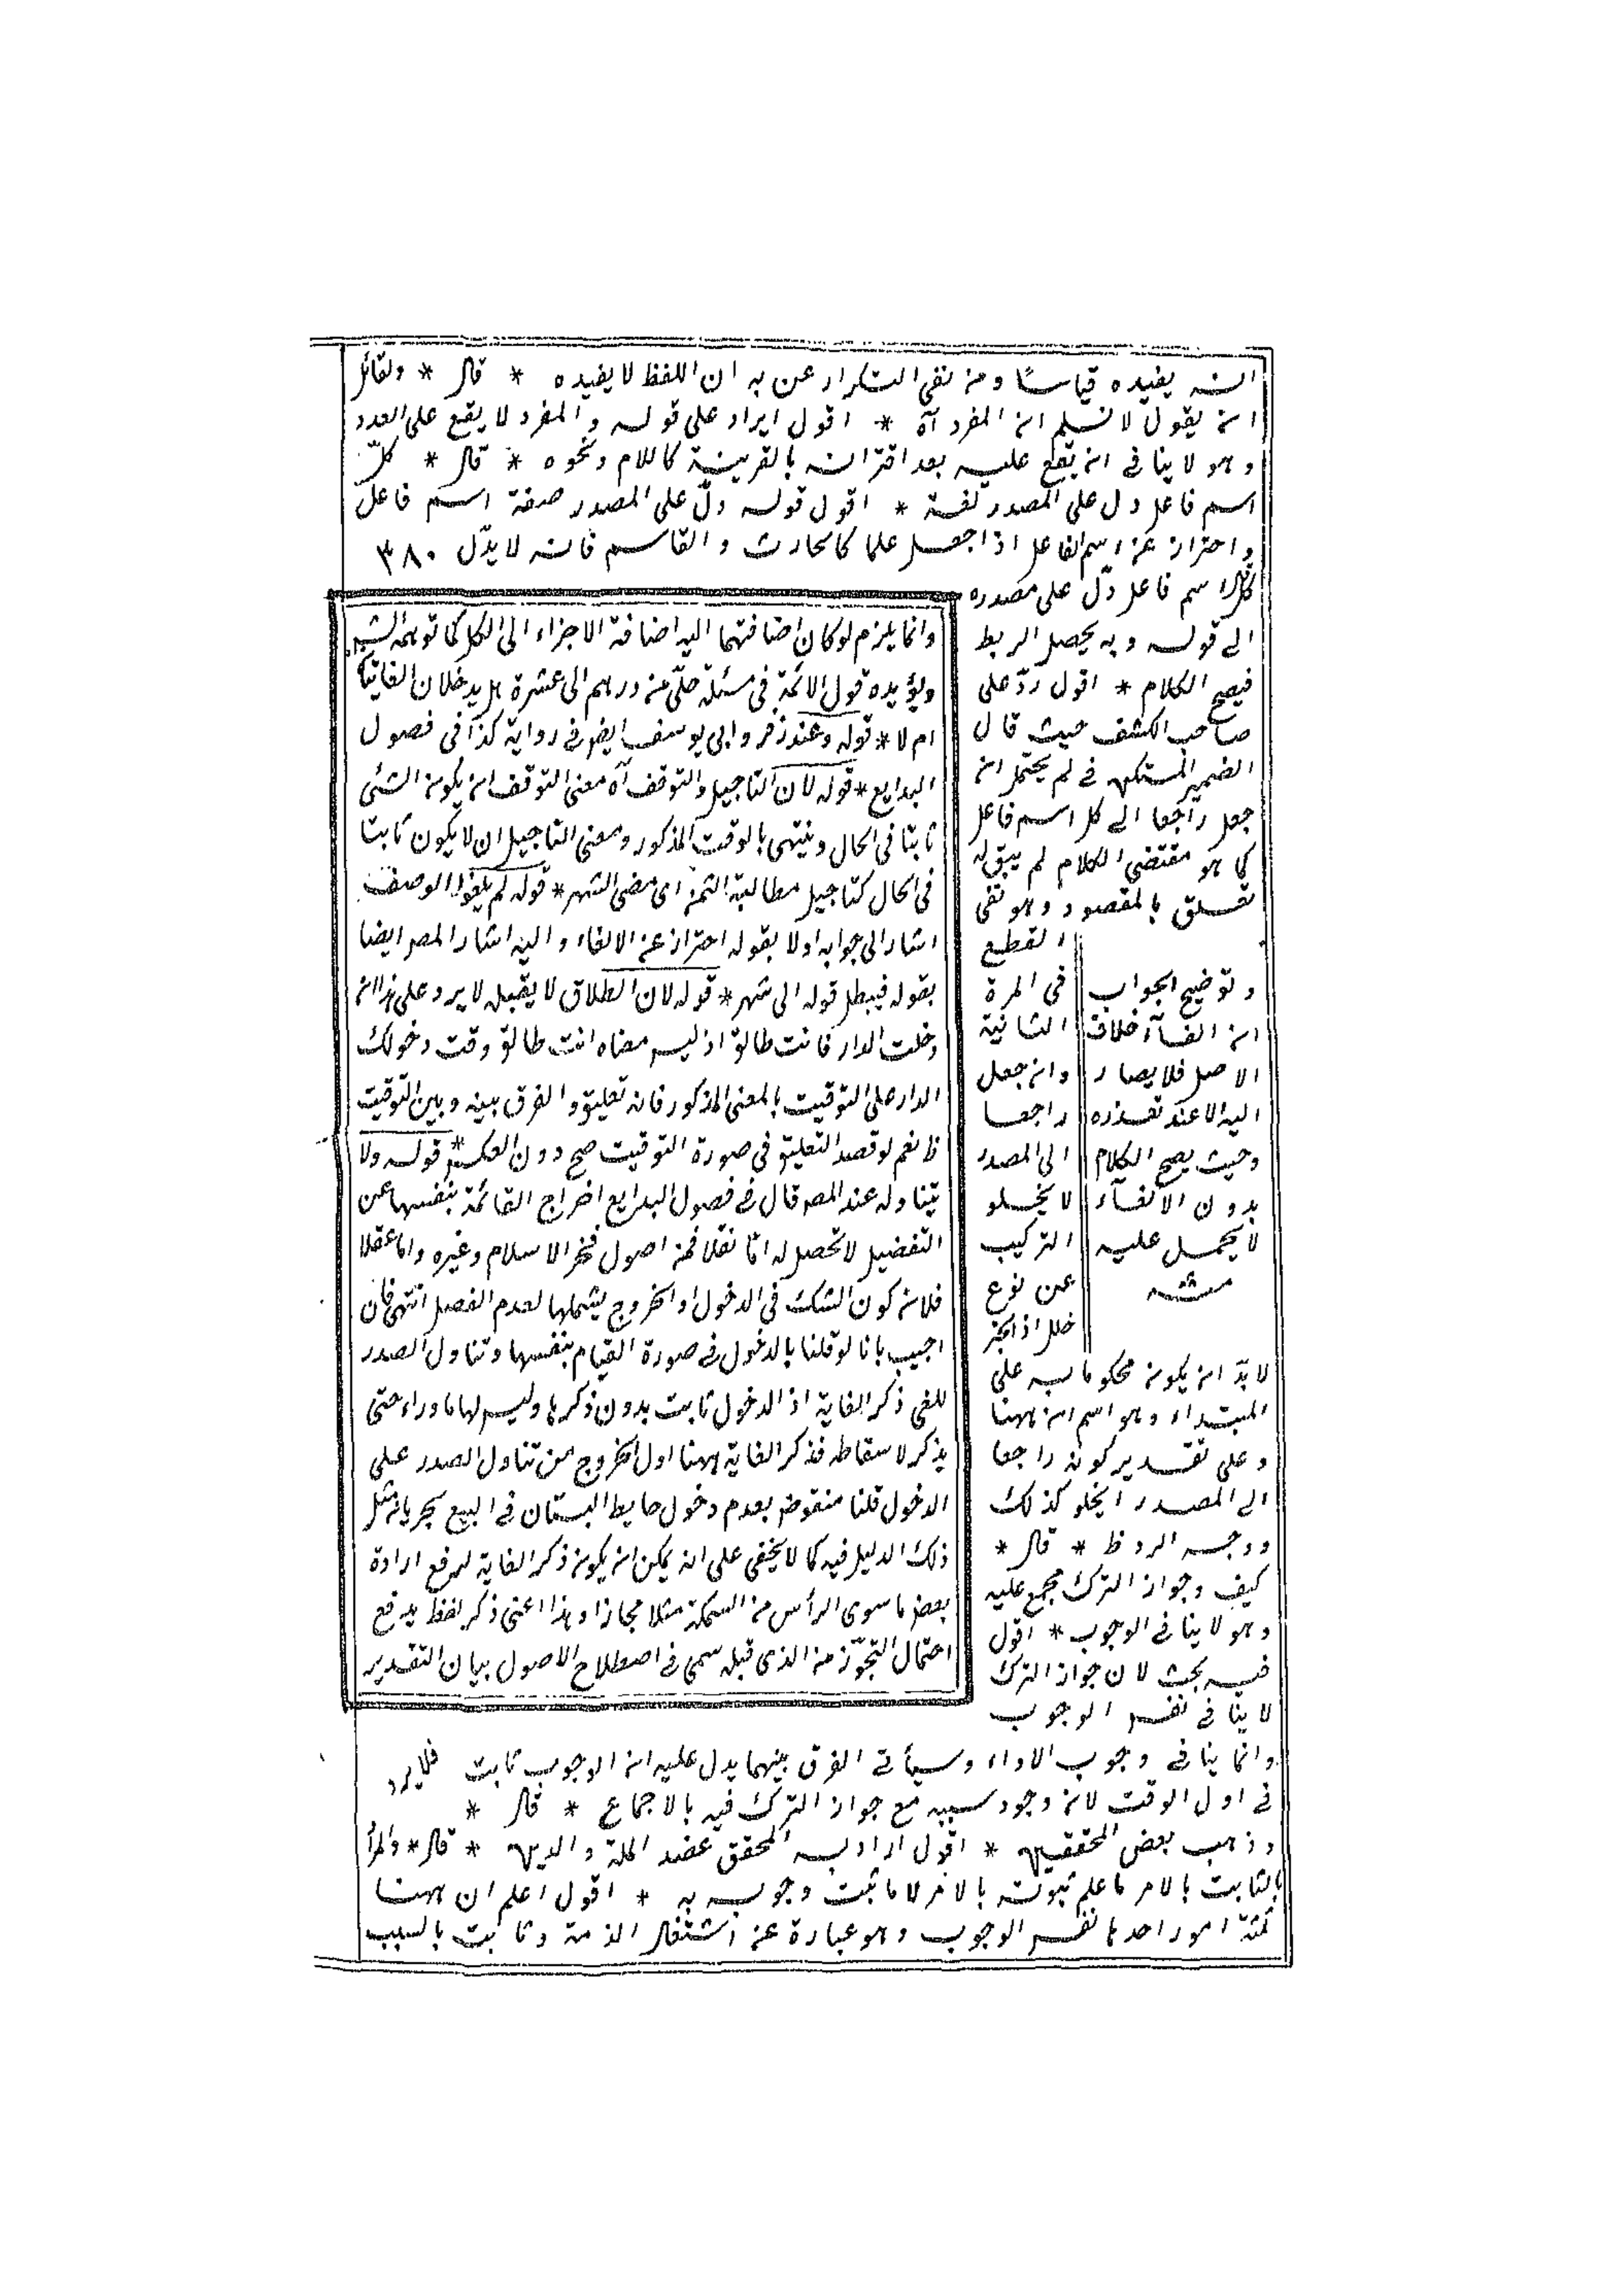 انه يفيده قياسًا ومن نفى التكرار عن به ان اللفظ لا يفيده * قال * ولقائل
ان يقول لا نسلم ان المفرد آه * اقول ايراد على قوله والمفرد لا يقع على العدد
وهو لا ينافى ان يقع عليه بعد اقترانه بالقرينة كاللام ونحوه * قال * كلّ
اسم فاعل دل على المصدر لغة * اقول قوله دلّ على المصدر صفة اسم فاعل
واحتراز عن اسم الفاعل اذا جعل علما كالحارث والقاسم فانه لا يدلّ ٣٨٠
كل اسم فاعل دلّ على مصدره
الى قوله وبه يحصل الربط
فيصح الكلام * اقول ردّ على
صاحب الكشف حيث قال
الضمير المستكن فى لم يحتمل ان
جعل راجعا الى كل اسم فاعل
كما هو مقتضى الكلام لم يبق له
تعلق بالمقصود وهو نفى
القطع
فى المرة
الثانية
وان جعل
راجعا
الى المصدر
لا يخلو
التركيب
عن نوع
خلل اذ الخبر
لا بدّ ان يكون محكوما به على
المبتداء وهو اسم ان ههنا
وعلى تقدير كونه راجعا
الى المصدر ايخلو كذلك
ووجه الرد ظ * قال *
كيف وجواز الترك مجمع عليه
وهو لا ينافى الوجوب * اقول
فيه بحث لان جواز الترك
لا ينافى نفس الوجوب
وانما ينافى وجوب الاداء وسيأتى الفرق بينهما يدل عليه ان الوجوب ثابت فلا يرد
فى اول الوقت لان وجود سببه مع جواز الترك فيه بالاجماع * قال *
وذهب بعض المحققين * اقول اراد به المحقق عضد الملة والدين * قال * والمراد
بالثابت بالامر ما علم ثبوته بالامر لا ما ثبت وجوبه به * اقول اعلم ان ههنا
ثلثة امور احدها نفس الوجوب وهو عبارة عن اشتغال الذمة وثابت بالسبب
وتوضيح الجواب
ان الغاء خلاف
الاصل فلا يصار
اليه الا عند تعذره
وحيث يصح الكلام
بدون الالغاء
لا يحمل عليه
منه
وانما يلزم لو كان اضافتهما اليه اضافة الاجزاء الى الكل كما توهمه
ويؤيده قول الائمة فى مسئلة حلّى من درهم الى عشرة هل يدخلان الغايتان
ام لا * قوله وعند زفر وابى يوسف ايضا فى رواية كذا فى فصول
البدايع * قوله لان التاجيل والتوقف آه معنى التوقف ان يكون الشئ
ثابتا فى الحال وينتهى بالوقت المذكور ومعنى التاجيل ان لا يكون ثابتا
فى الحال كتاجيل مطالبة الثمن الى مضى الشهر * قوله لم يلغوا الوصف
اشار الى جوابه اولا بقوله احتراز عن الالغاء واليه اشار المصر ايضا
بقوله فيبطل قوله الى شهر * قوله لان الطلاق لا يقبله لا يرد على هذا ان
دخلت الدار فانت طالق اذ ليس معناه انت طالق وقت دخولك
الدار على التوقيت بالمعنى المذكور فانه تعليق والفرق بينه وبين التوقيت
ظ نعم لو قصد التعليق فى صورة التوقيت صح دون العكس * قوله ولا
يتناوله عند المصر قال فى فصول البدايع اخراج القائمة بنفسها عن
التفضيل لا تحصل له امّا نقلا فمن اصول فخر الاسلام وغيره واما عقلا
فلان كون الشك فى الدخول او الخروج يشملها لعدم الفصل انتهى فان
اجيب بانا لو قلنا بالدخول فى صورة القيام بنفسها وتناول الصدر
للغى ذكر الغاية اذ الدخول ثابت بدون ذكرها وليس لها ما وراء حتى
يذكر لاسقاطه فذكر الغاية ههنا اول الخروج من تناول الصدر على
الدخول قلنا منقوض بعدم دخول حايط البستان فى البيع بجريان مثل
ذلك الدليل فيه كما لا يخفى على انه يمكن ان يكون ذكر الغاية لدفع ارادة
بعض ما سوى الرأس من السمكة مثلا مجازا وهذا اعنى ذكر لفظ يدفع
احتمال التجوّز من الذى قبله سمى فى اصطلاح الاصول بيان التقدير